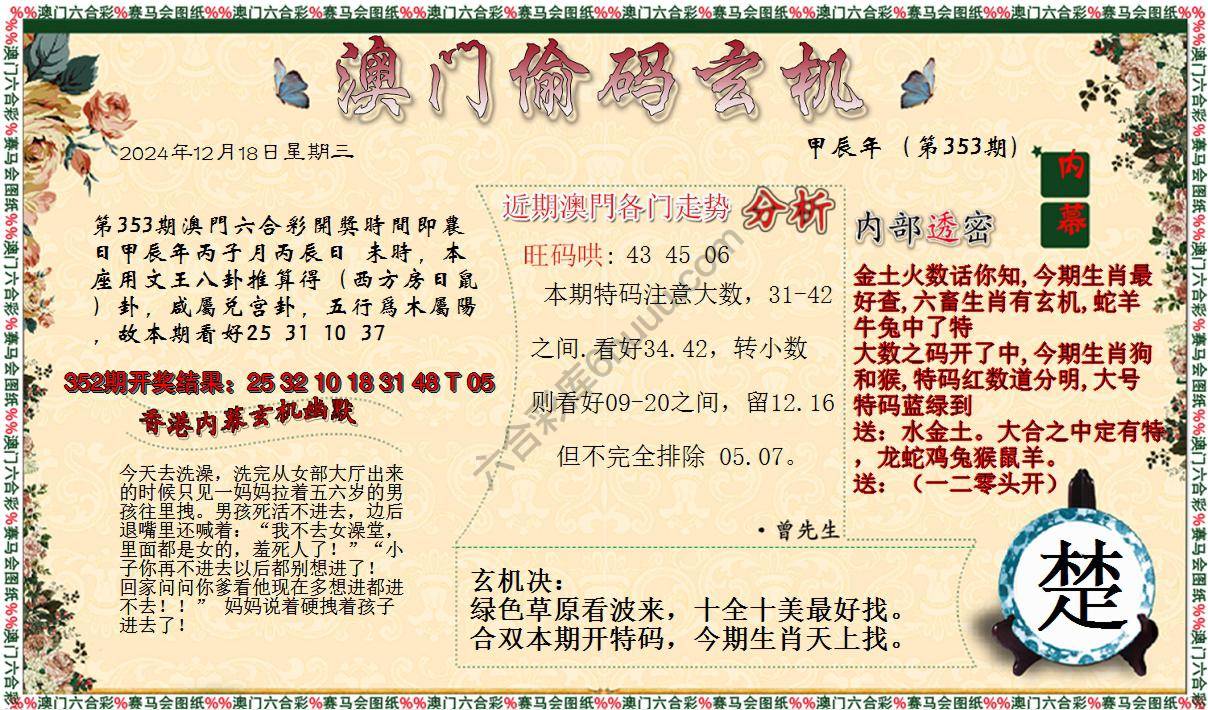 %%澳门六合彩%赛马会图纸%%澳门六合彩%赛马会图纸%%澳门六合彩%赛马会图纸%%澳门六合彩%赛马会图纸%%澳门六合彩%赛马会图纸%%澳门六合彩%赛马会图纸%
澳门偷码玄机
2024年12月18日星期三
甲辰年（第353期）
内
幕
第353期澳門六合彩開獎時間即農
日甲辰年丙子月丙辰日 未時，本
座用文王八卦推算得（西方房日鼠
）卦，咸屬兑宫卦，五行爲木屬陽
，故本期看好25 31 10 37
352期开奖结果：25 32 10 18 31 48 T 05
香港内幕玄机幽默
今天去洗澡，洗完从女部大厅出来
的时候只见一妈妈拉着五六岁的男
孩往里拽。男孩死活不进去，边后
退嘴里还喊着：“我不去女澡堂，
里面都是女的，羞死人了！”“小
子你再不进去以后都别想进了！
回家问问你爹看他现在多想进都进
不去！！” 妈妈说着硬拽着孩子
进去了！
近期澳門各门走势 分析
旺码哄: 43 45 06
本期特码注意大数，31-42
之间.看好34.42，转小数
则看好09-20之间，留12.16
但不完全排除 05.07。
·曾先生
内部透密
金土火数话你知,今期生肖最
好查,六畜生肖有玄机,蛇羊
牛兔中了特
大数之码开了中,今期生肖狗
和猴,特码红数道分明,大号
特码蓝绿到
送：水金土。大合之中定有特
，龙蛇鸡兔猴鼠羊。
送：（一二零头开）
玄机决：
绿色草原看波来，十全十美最好找。
合双本期开特码，今期生肖天上找。
楚
%%澳门六合彩%赛马会图纸%%澳门六合彩%赛马会图纸%%澳门六合彩%赛马会图纸%%澳门六合彩%赛马会图纸%%澳门六合彩%赛马会图纸%%澳门六合彩%赛马会图纸%